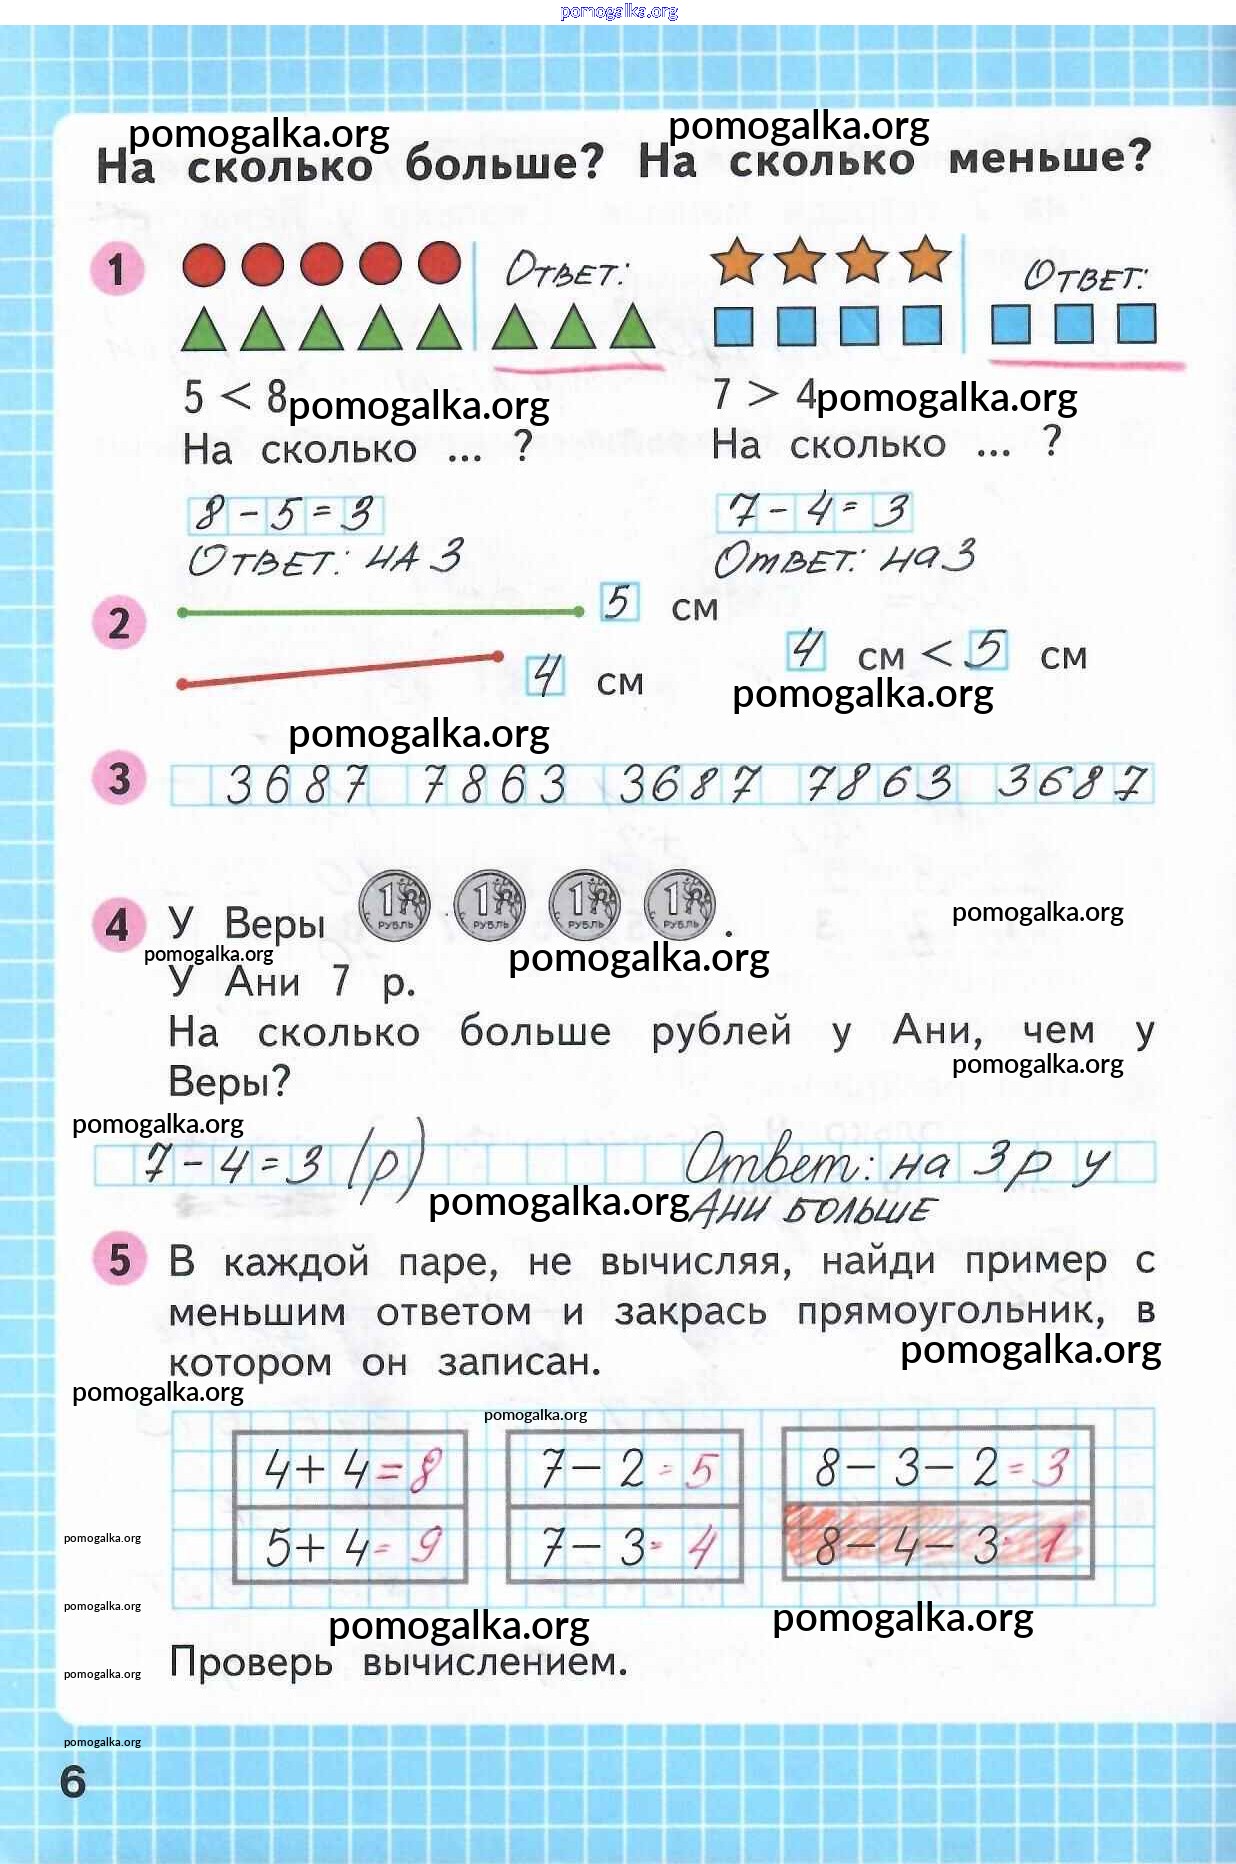 pomogalka.org
pomogalka.org pomogalka.org
На сколько больше? На сколько меньше?
1 Ответ: Ответ:
5 < 8 pomogalka.org 7 > 4 pomogalka.org
На сколько ... ? На сколько ... ?
8 - 5 = 3 7 - 4 = 3
Ответ: на 3 Ответ: на 3
2 5 см
4 см 4 см < 5 см
pomogalka.org
pomogalka.org
3 3 6 8 7 7 8 6 3 3 6 8 7 7 8 6 3 3 6 8 7
4 У Веры 1 РУБЛЬ 1 РУБЛЬ 1 РУБЛЬ 1 РУБЛЬ .
pomogalka.org
pomogalka.org pomogalka.org
У Ани 7 р.
На сколько больше рублей у Ани, чем у
pomogalka.org
Веры?
pomogalka.org
7 - 4 = 3 (р) Ответ: на 3 р у
pomogalka.org Ани больше
5 В каждой паре, не вычисляя, найди пример с
меньшим ответом и закрась прямоугольник, в
pomogalka.org
котором он записан.
pomogalka.org
pomogalka.org
4 + 4 = 8 7 - 2 = 5 8 - 3 - 2 = 3
pomogalka.org
5 + 4 = 9 7 - 3 = 4 8 - 4 - 3 = 1
pomogalka.org
pomogalka.org pomogalka.org
Проверь вычислением.
pomogalka.org
pomogalka.org
6